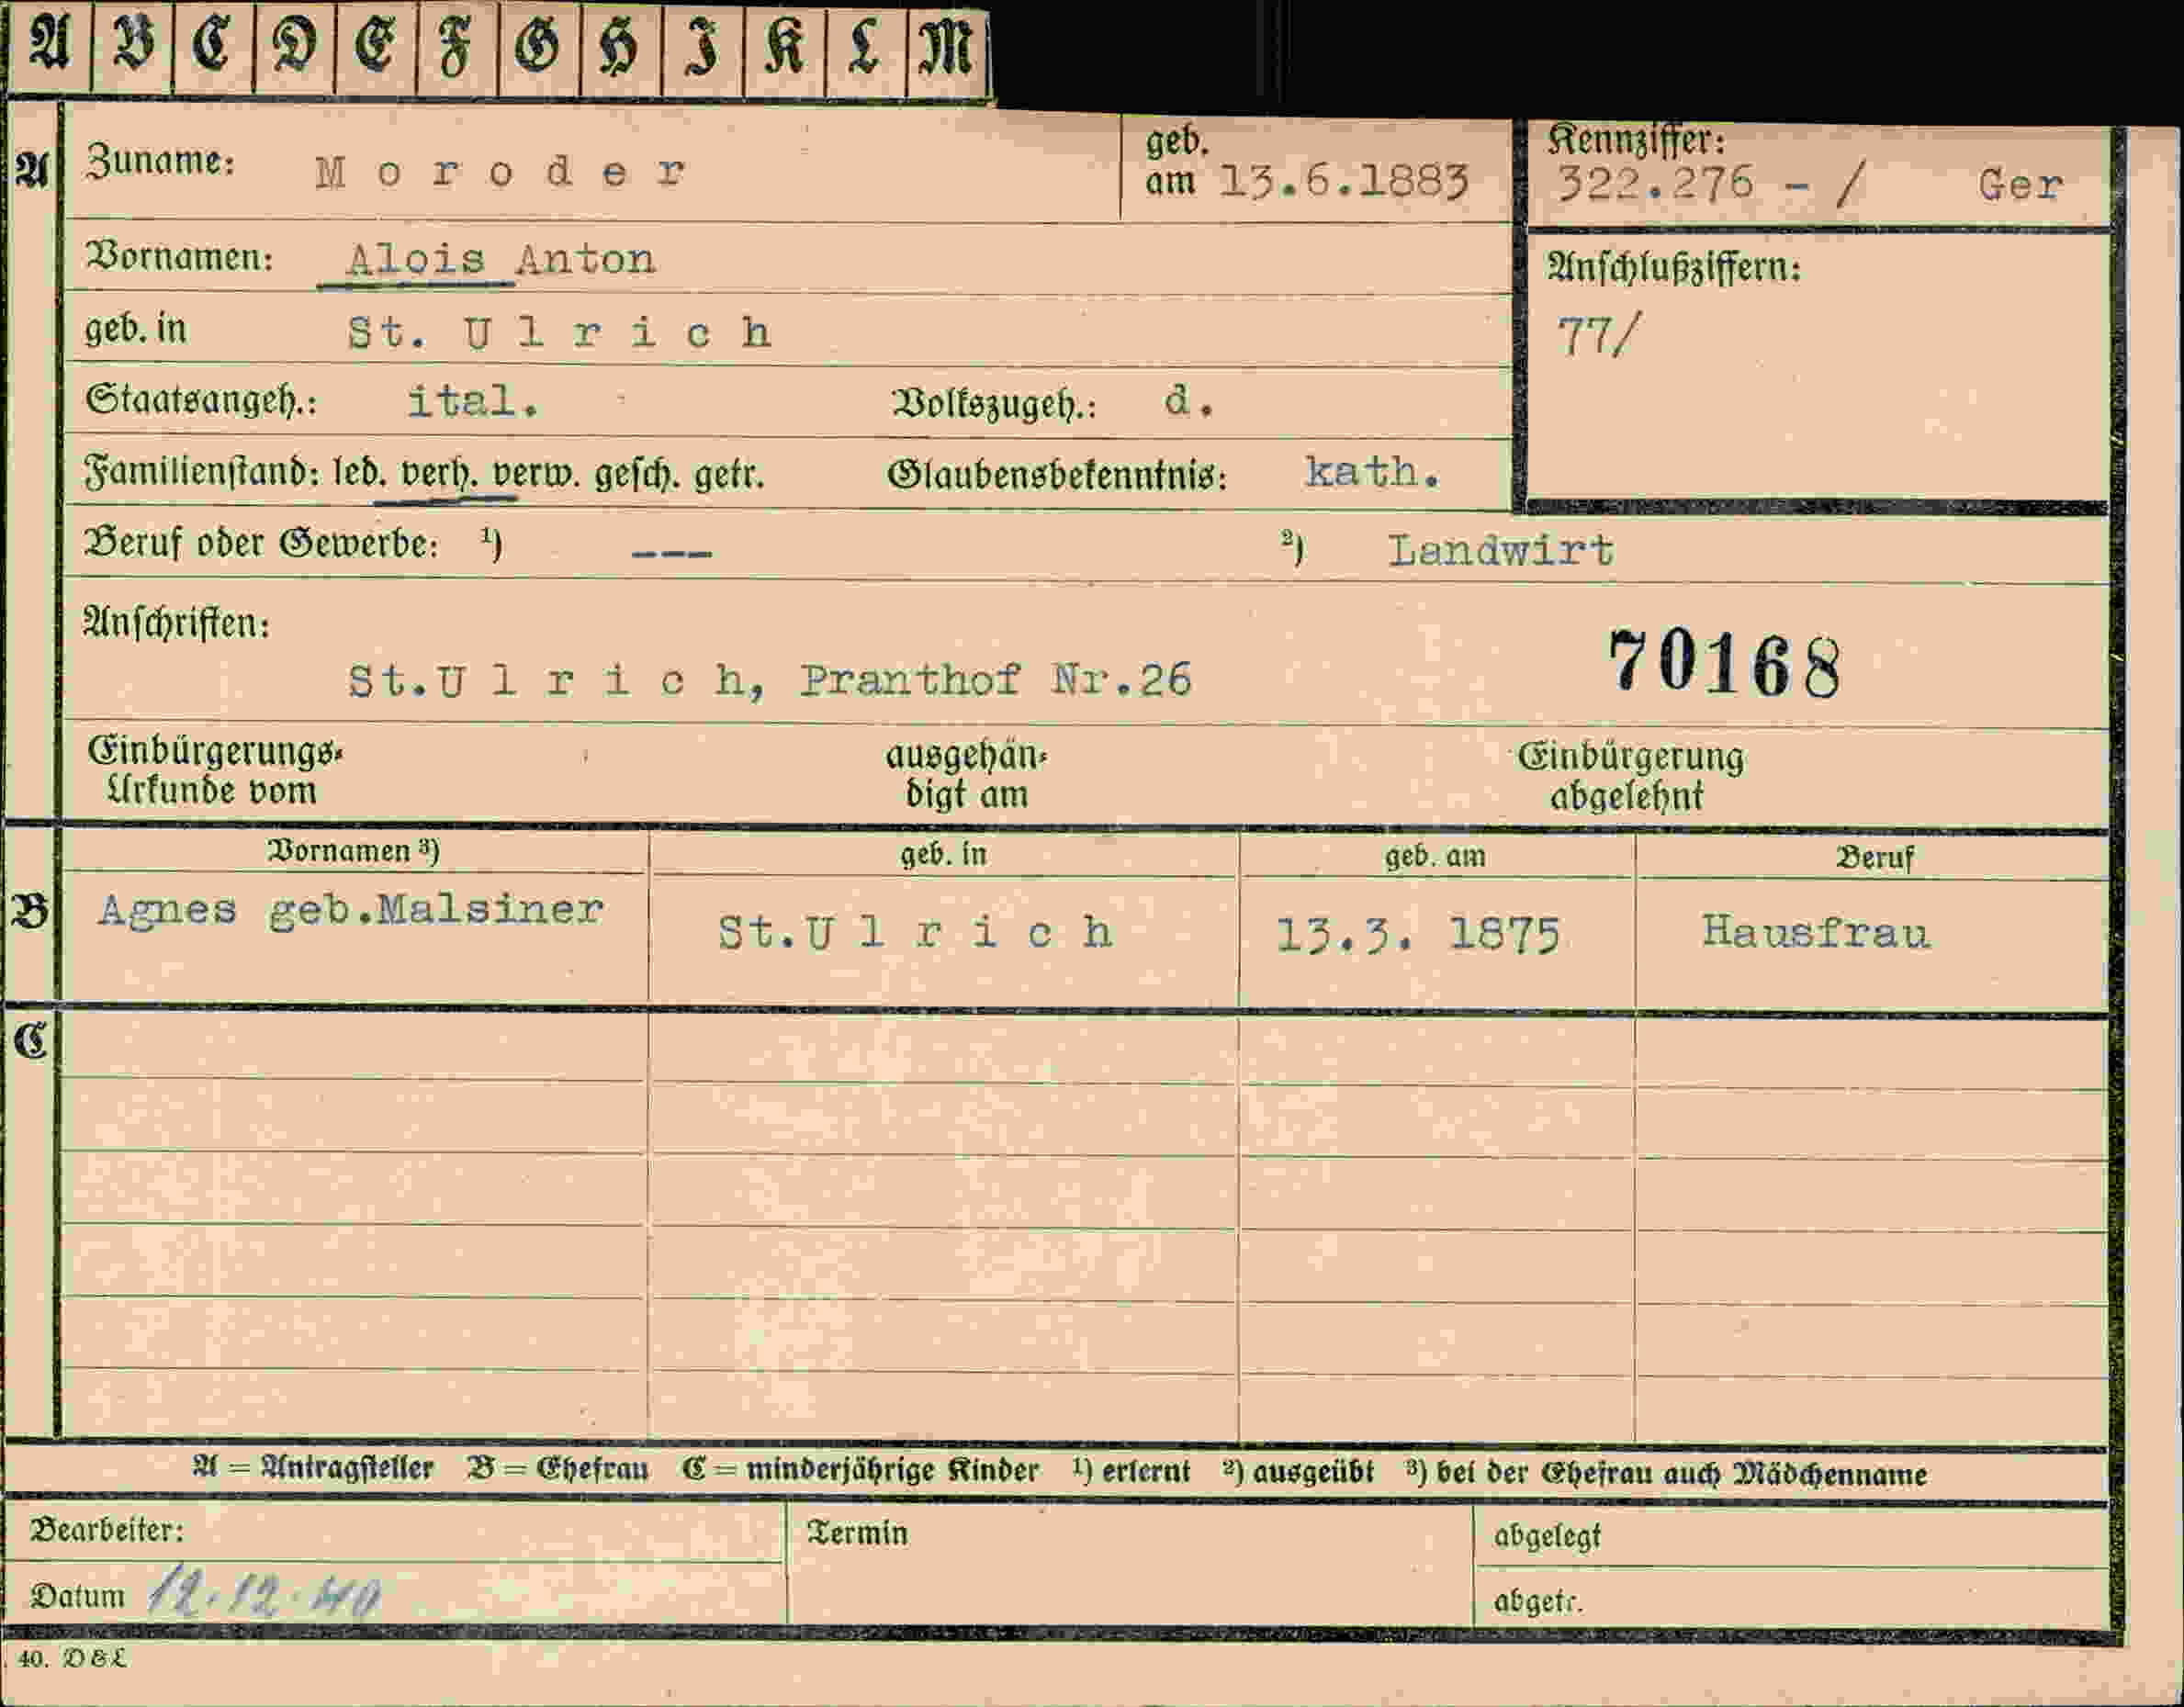 A B C D E F G H I K L M
A Zuname: M o r o d e r geb. am 13.6.1883 Kennziffer: 322.276 - / Ger
Vornamen: Alois Anton Anschlußziffern:
geb. in St. U l r i c h 77/
Staatsangeh.: ital. Volkszugeh.: d.
Familienstand: led. verh. verw. gesch. getr. Glaubensbekenntnis: kath.
Beruf oder Gewerbe: ¹) --- ²) Landwirt
Anschriften:
St.U l r i c h, Pranthof Nr.26 70168
Einbürgerungs- ausgehän- Einbürgerung
Urkunde vom digt am abgelehnt
Vornamen ³) geb. in geb. am Beruf
B Agnes geb.Malsiner St.U l r i c h 13.3. 1875 Hausfrau
C
A = Antragsteller B = Ehefrau C = minderjährige Kinder ¹) erlernt ²) ausgeübt ³) bei der Ehefrau auch Mädchenname
Bearbeiter: Termin abgelegt
Datum 12.12.40 abgetr.
40. D & L